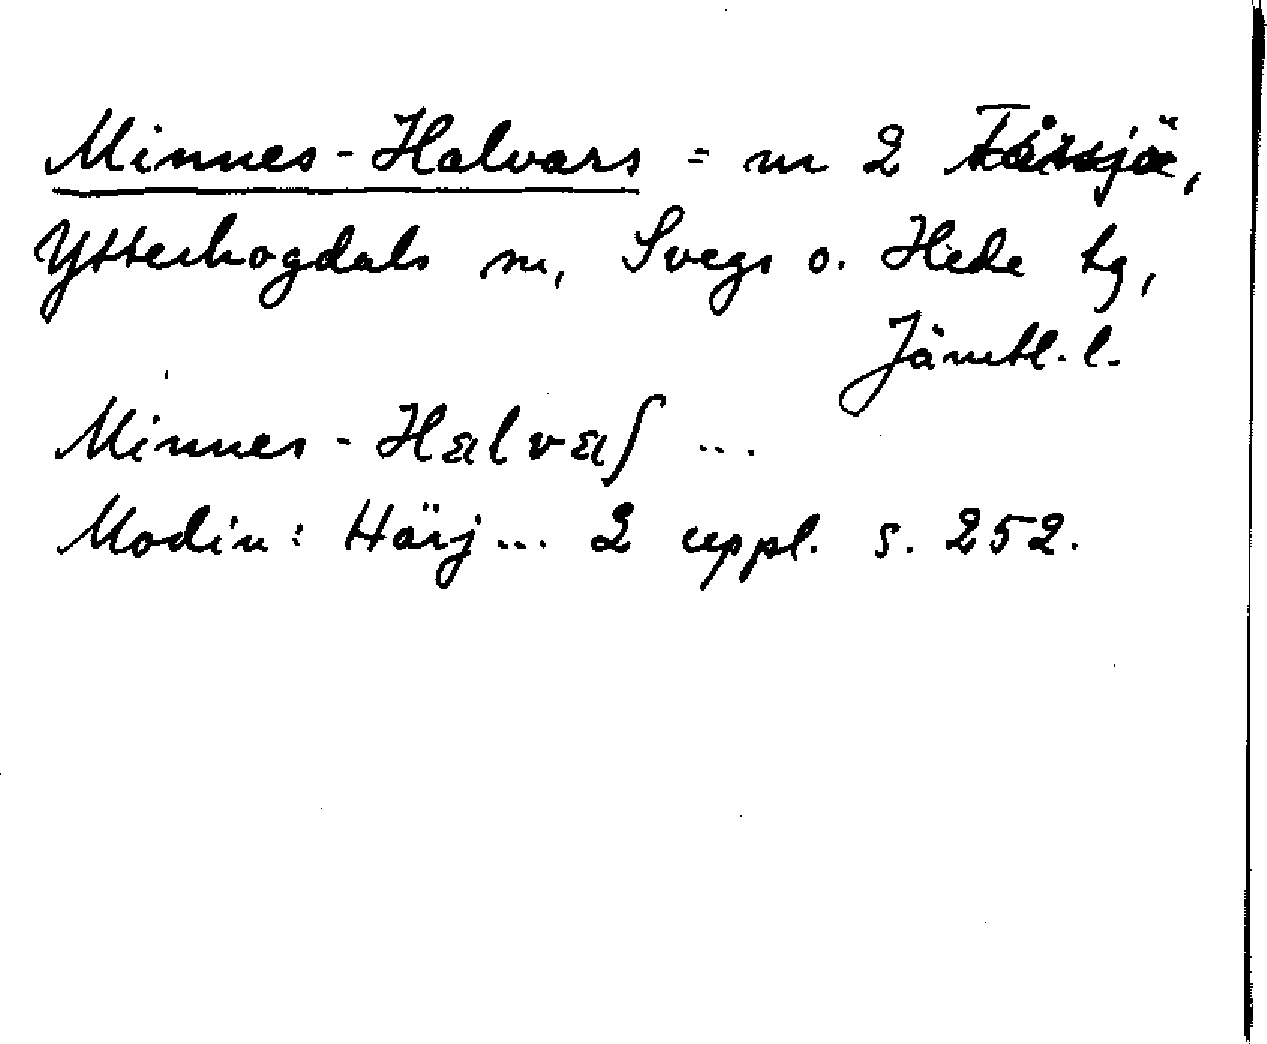 Minnes-Halvars = m 2 Fåssjö,
Ytterhogdals sn, Svegs o. Hede tg,
Jämtl. l.
Minnes-Halvaʃ ...
Modin: Härj... 2 uppl. s. 252.